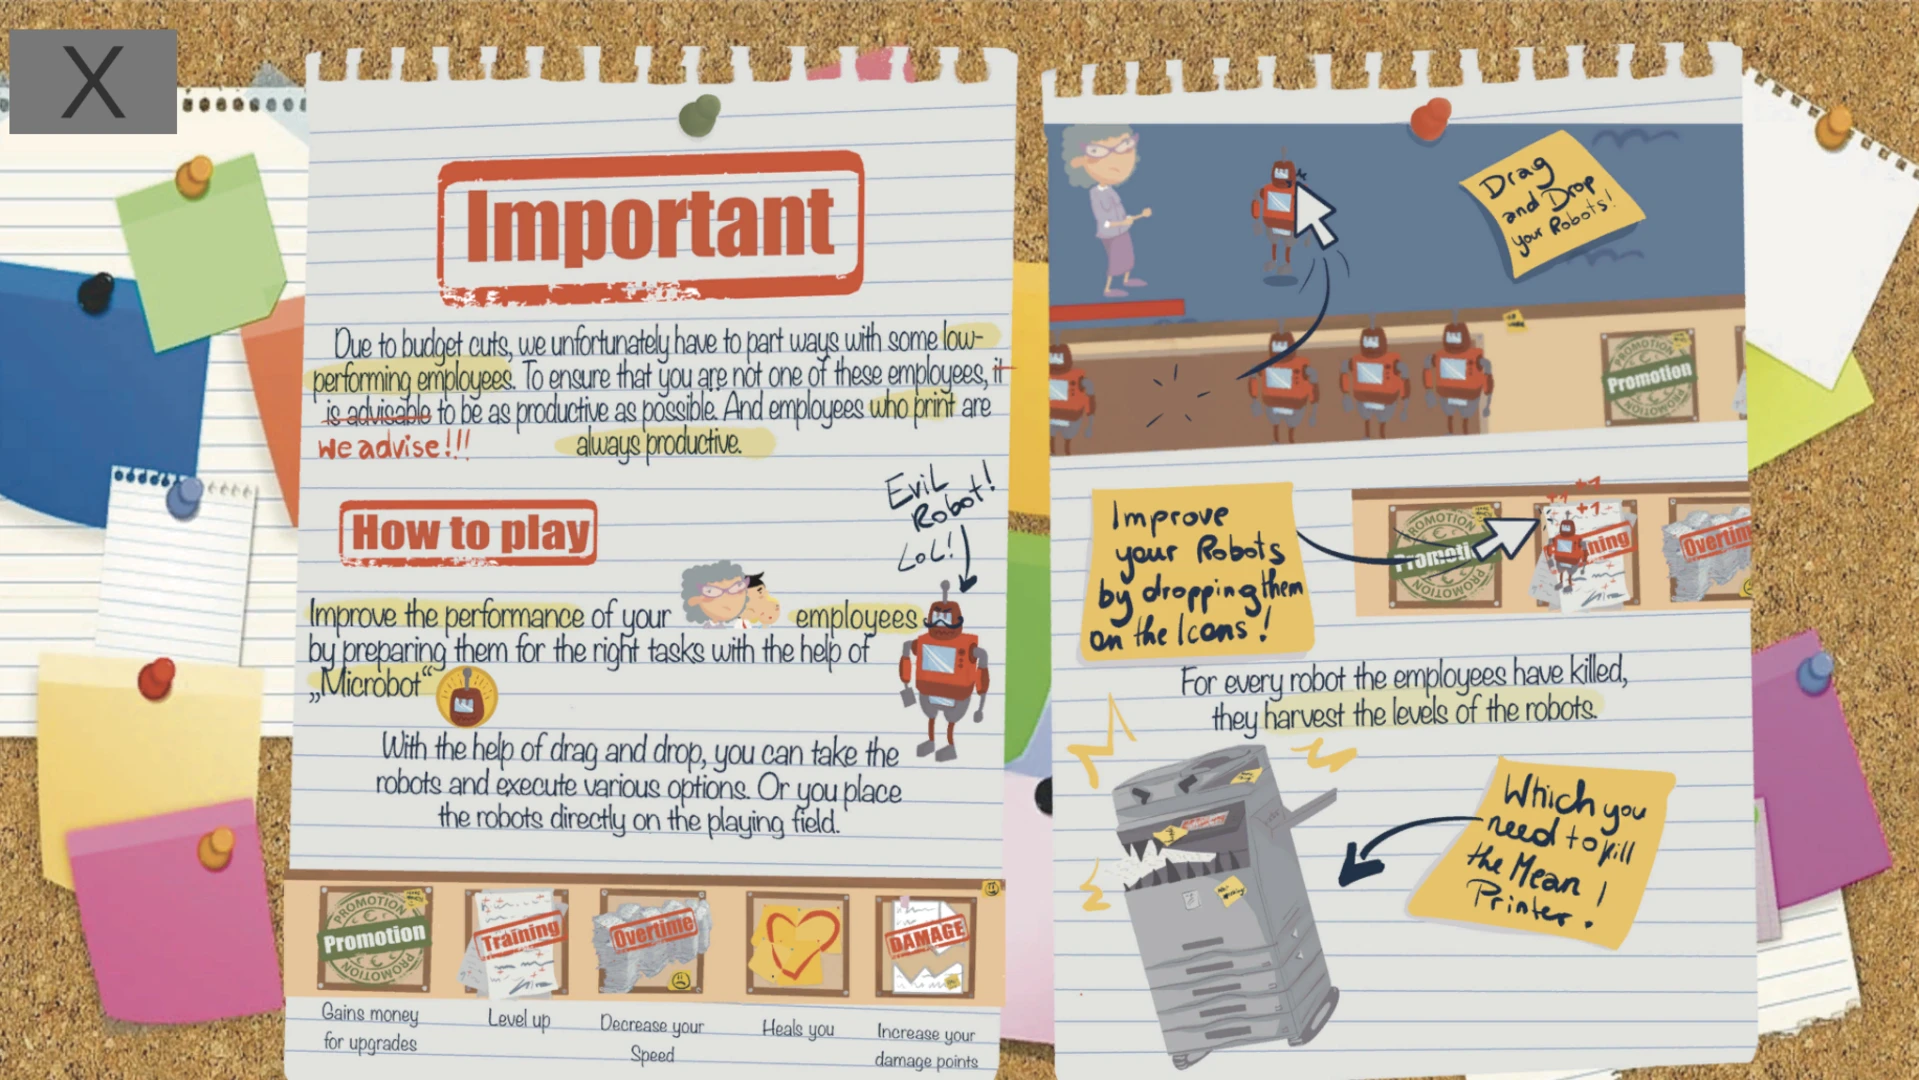 X
Important
Due to budget cuts, we unfortunately have to part ways with some low-
performing employees. To ensure that you are not one of these employees, it
is advisable to be as productive as possible. And employees who print are
we advise!!! always productive.
Evil
Robot!
LoL!
How to play
Improve the performance of your employees
by preparing them for the right tasks with the help of
„Microbot“
With the help of drag and drop, you can take the
robots and execute various options. Or you place
the robots directly on the playing field.
PROMOTION
Promotion
PROMOTION
Training
Overtime
DAMAGE
Gains money
for upgrades
Level up
Decrease your
Speed
Heals you
Increase your
damage points
Drag
and Drop
your Robots!
PROMOTION
Promotion
PROMOTION
Improve
your Robots
by dropping them
on the Icons!
PROMOTION
Promoti
PROMOTION
+1 +1
+1
ning
Overtim
For every robot the employees have killed,
they harvest the levels of the robots.
Which you
need to kill
the Mean
Printer!